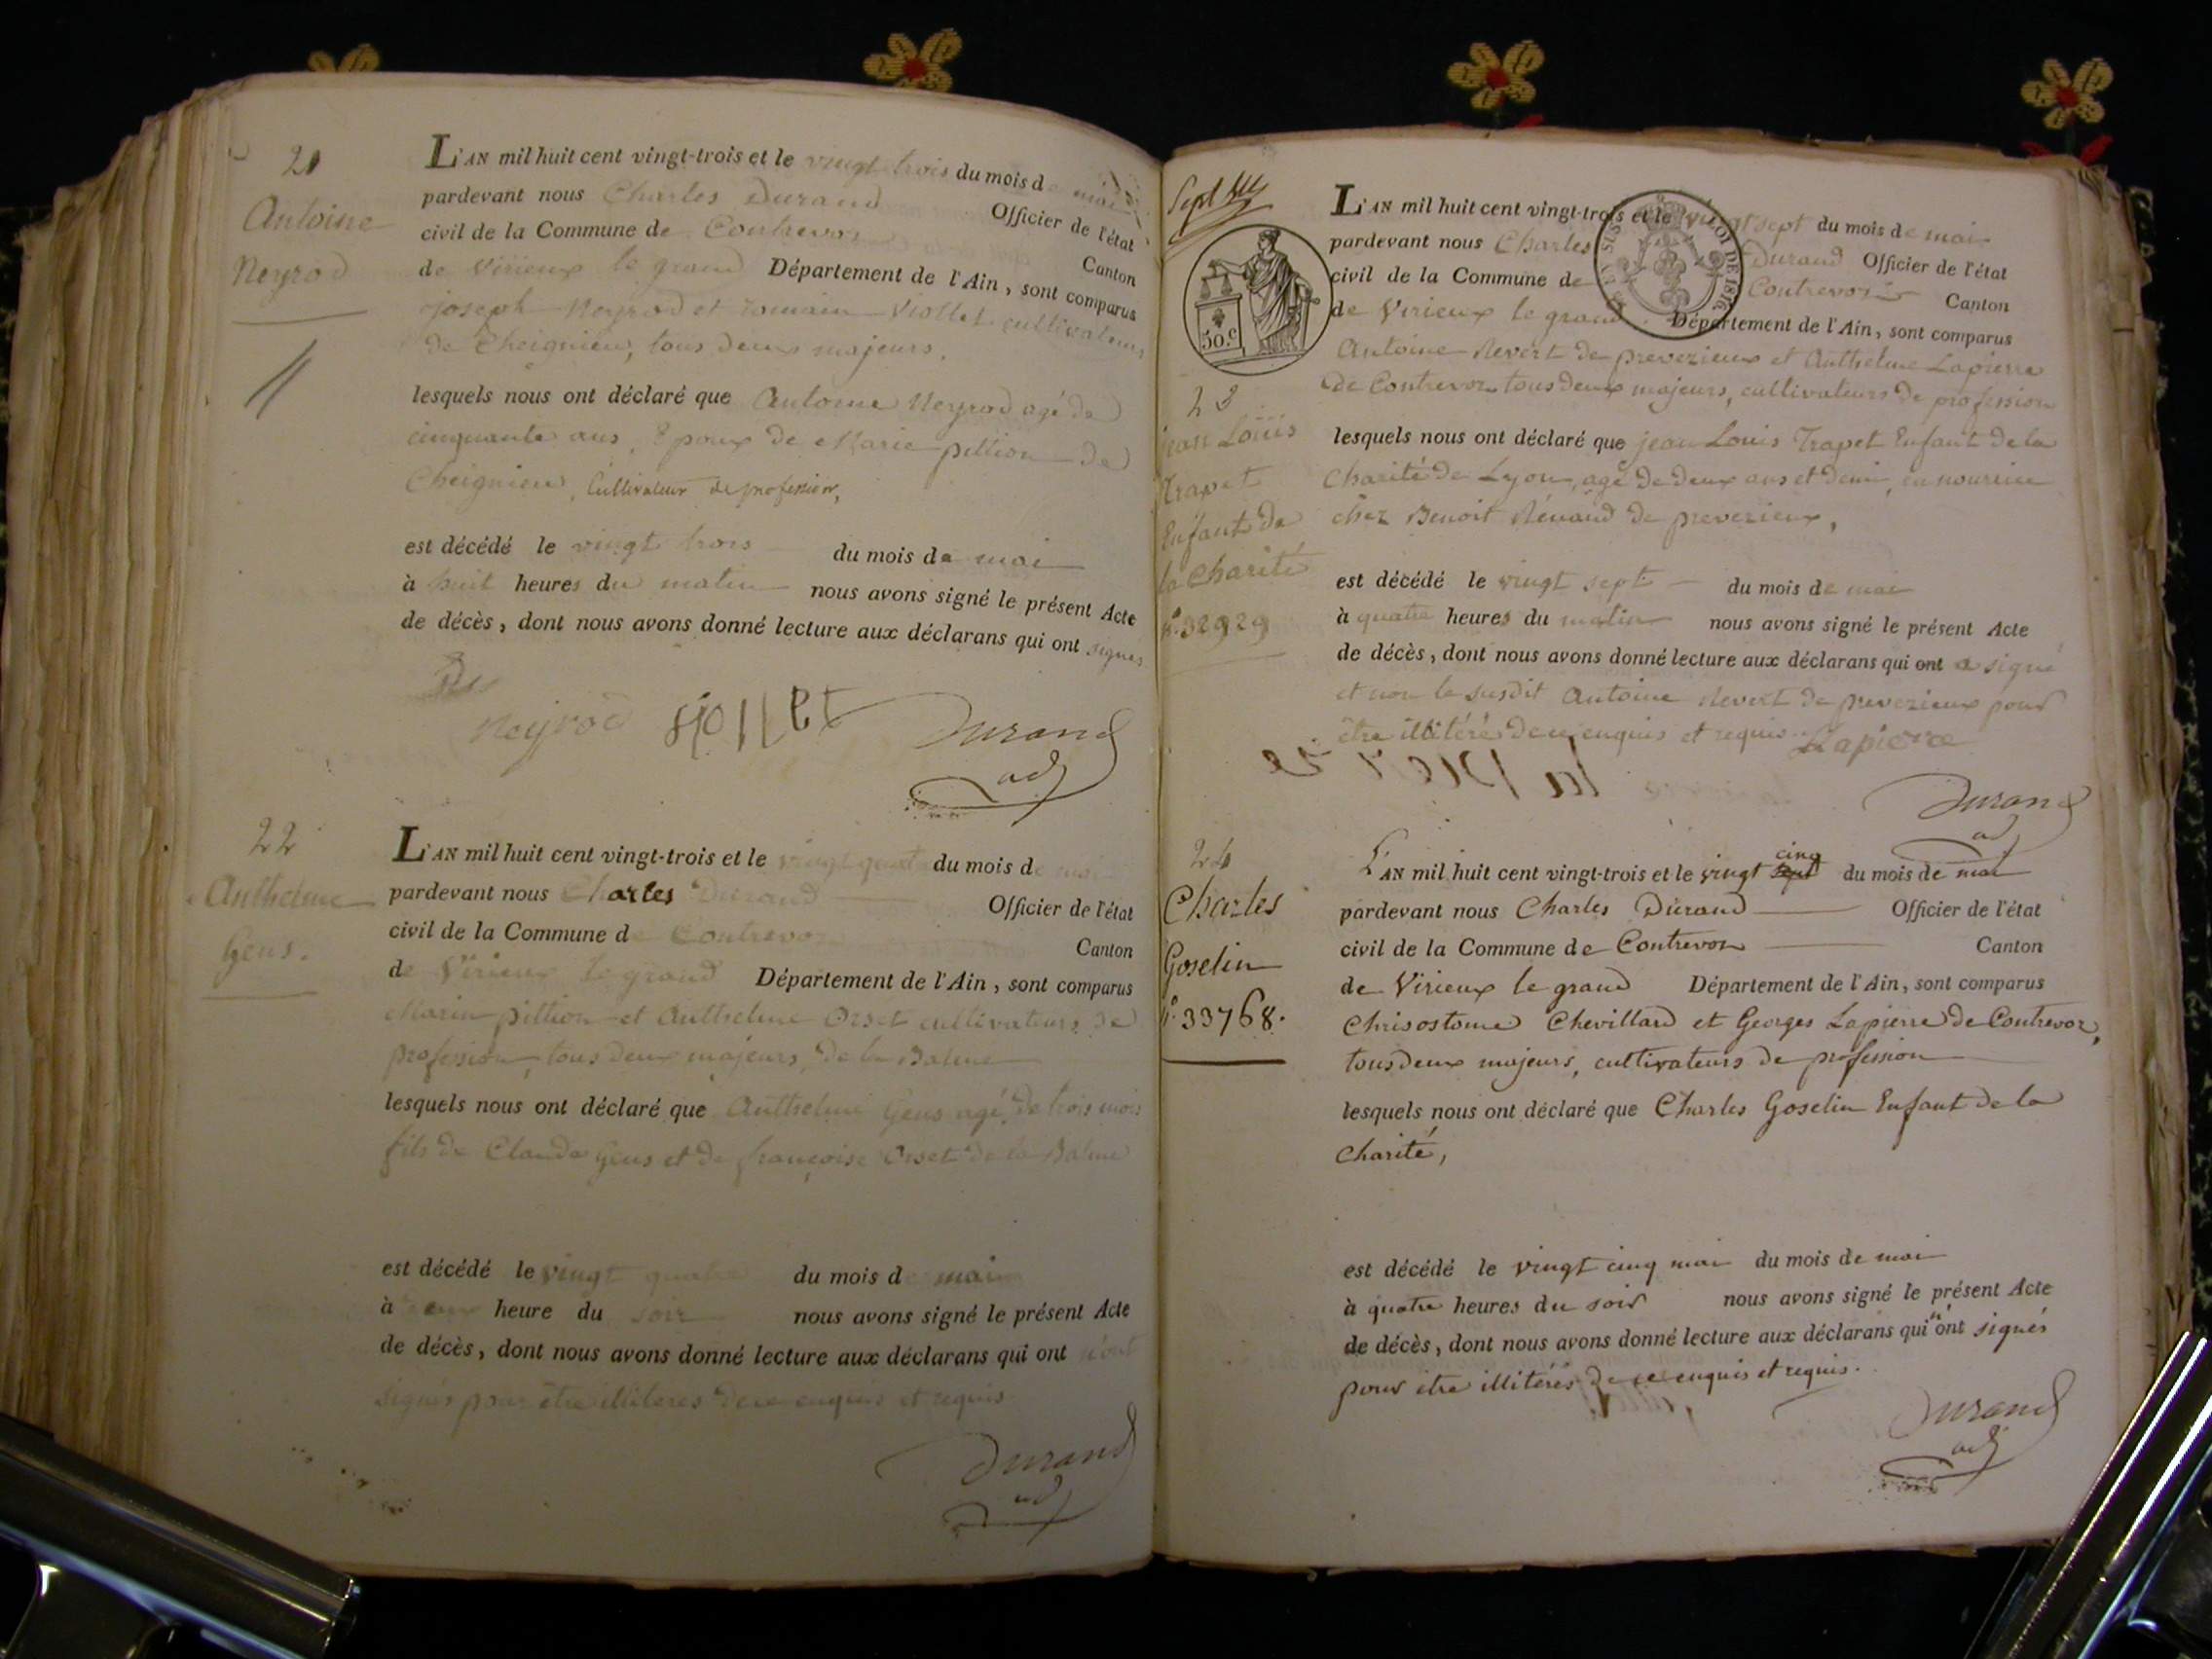 21
Antoine
Neyrod
L'AN mil huit cent vingt-trois et le vingt trois du mois de mai
pardevant nous Charles Durand Officier de l'état
civil de la Commune de Contrevoz Canton
de Virieux le grand Département de l'Ain, sont comparus
joseph Neyrod et romain Viollet cultivateurs
de Cheignieu, tous deux majeurs,
lesquels nous ont déclaré que Antoine Neyrod agé de
cinquante ans, Epoux de Marie pittion de
Cheignieu, Cultivateur de profession,
est décédé le vingt trois du mois de mai
à huit heures du matin nous avons signé le présent Acte
de décès, dont nous avons donné lecture aux déclarans qui ont signés
Neyrod Durand
adj
22
Anthelme
Gens.
L'AN mil huit cent vingt-trois et le vingt quatre du mois de mai
pardevant nous Charles Durand Officier de l'état
civil de la Commune de Contrevoz Canton
de Virieux le grand Département de l'Ain, sont comparus
Marin pittion et Anthelme Orset cultivateurs de
profession, tous deux majeurs, de la Balme
lesquels nous ont déclaré que Anthelme Gens agé de trois mois
fils de Claude Gens et de françoise Orset de la Balme
est décédé le vingt quatre du mois de mai
à heure du soir nous avons signé le présent Acte
de décès, dont nous avons donné lecture aux déclarans qui ont n'ont
signés pour être illiterés de ce enquis et requis.
Durand
adj
Sept
50.C
LOI DE 1816
23
jean Louis
Trapet
Enfant de
la Charité
n.° 32929
L'AN mil huit cent vingt-trois et le vingt sept du mois de mai
pardevant nous Charles Durand Officier de l'état
civil de la Commune de Contrevoz Canton
de Virieux le grand Département de l'Ain, sont comparus
Antoine Revert de preverieux et Anthelme Lapierre
de Contrevoz tous deux majeurs, cultivateurs de profession
lesquels nous ont déclaré que jean Louis Trapet Enfant de la
Charité de Lyon, agé de deux ans et demi, en nourrice
chez Benoit Renaud de preverieux,
est décédé le vingt sept du mois de mai
à quatre heures du matin nous avons signé le présent Acte
de décès, dont nous avons donné lecture aux déclarans qui ont a signé
et non le susdit Antoine Revert de preverieux pour
être illitéré de ce enquis et requis. Lapierre
Durand
adj
24
Charles
Goselin
n.° 33768.
L'AN mil huit cent vingt-trois et le vingt sept cinq du mois de mai
pardevant nous Charles Durand Officier de l'état
civil de la Commune de Contrevoz Canton
de Virieux le grand Département de l'Ain, sont comparus
Chrisostome Chevillard et Georges Lapierre de Contrevoz,
tous deux majeurs, cultivateurs de profession
lesquels nous ont déclaré que Charles Goselin Enfant de la
Charité,
est décédé le vingt cinq mai du mois de mai
à quatre heures du soir nous avons signé le présent Acte
de décès, dont nous avons donné lecture aux déclarans qui n'ont signés
pour être illitérés de ce enquis et requis.
Durand
adj